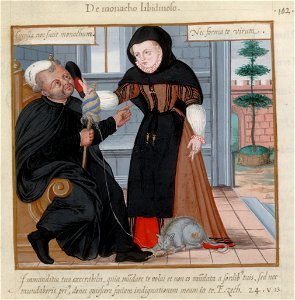 De monacho libidinoso.
162.
Cuculla non facit monachum.
Nec forma te virum.
Immunditia tua execrabilis, quia mūdare te volui et non es mūdata a sordib' tuis, sed nec
mundaberis pri', donec quiescere faciam indignationem meam in te. Ezech. 24. v. 13